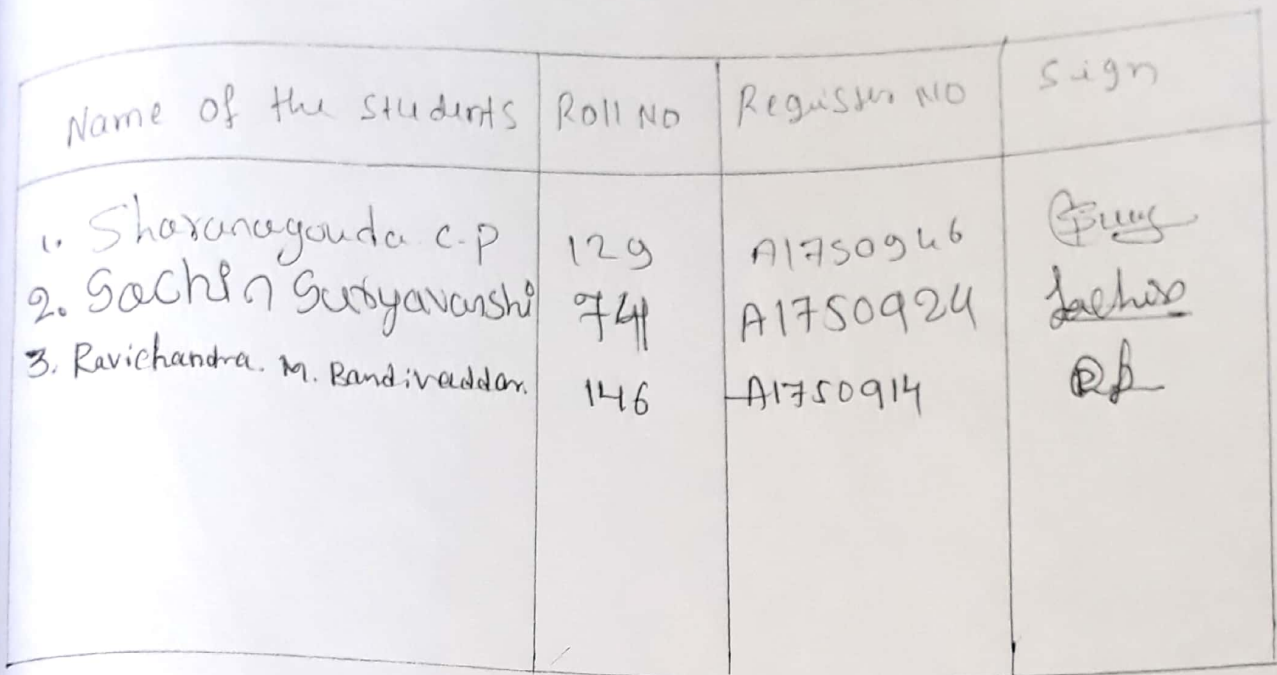 Name of the students Roll NO Register NO Sign
1. Sharanagouda C.P 129 A1750946
2. Sachin Suryavanshi 741 A1750924 Sachin
3. Ravichandra. M. Bandivaddar. 146 A1750914